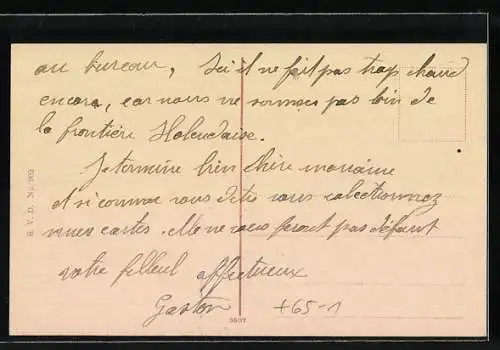 au bureau, Ici il ne fait pas trop chaud
encore, car nous ne sommes pas loin de
la frontière Holendaise.
Je termine bien chère marraine
et si comme vous dite vous colectionnez
vues cartes. Elle ne vous feront pas défaut
votre filleul affectueux
Gaston
+65-1
B. V. D. No.
3637